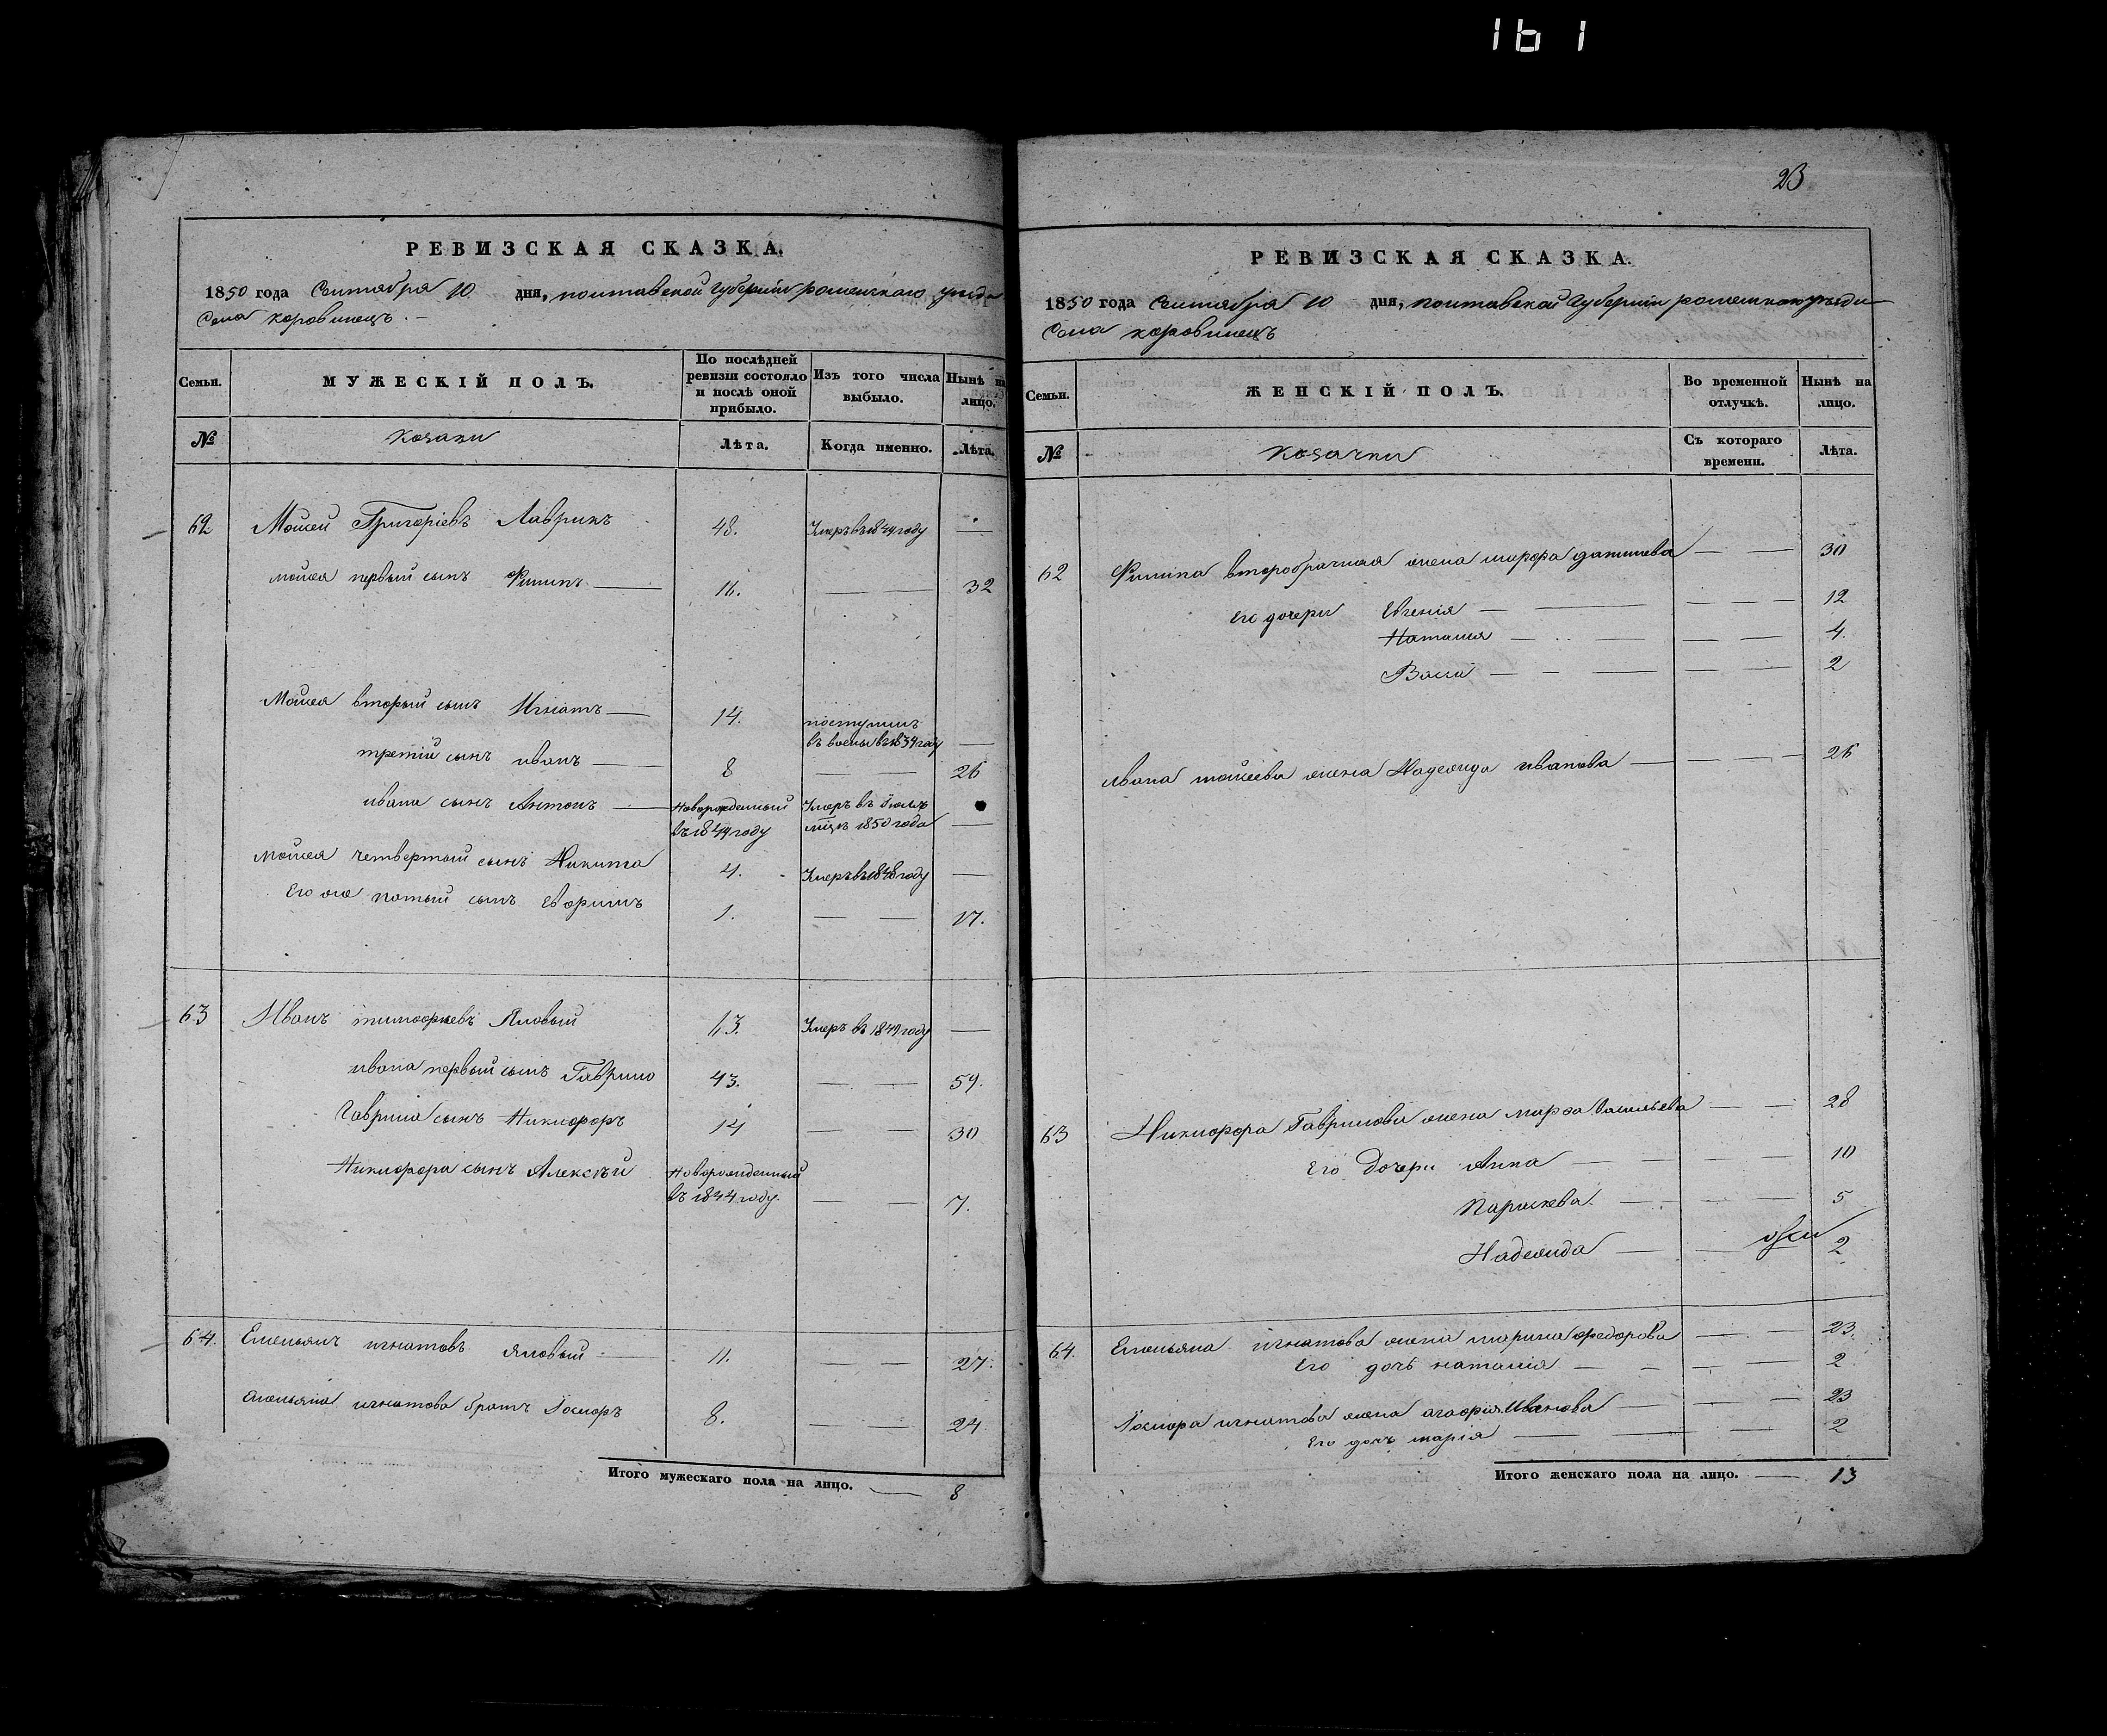 161
23
РЕВИЗСКАЯ СКАЗКА.
1850 года Сентября 10 дня, полтавской губернии роменскаго уезда
Села коровинецъ. –
Семьи. МУЖЕСКІЙ ПОЛЪ. По послѣдней ревизіи состояло и послѣ оной прибыло. Изъ того числа выбыло. Нынѣ на лицо.
№ Козаки Лѣта. Когда именно. Лѣта.
62 Мойсей Григоріевъ Лаврикъ 48. Умеръ въ 1849 году —
мойсея первый сынъ Филипъ 16. — — 32
Мойсея вторый сынъ Игнатъ 14. поступилъ
въ 1834 году —
третій сынъ иванъ 8 — 26
ивана сынъ Антонъ Новорожденный Умеръ въ
въ 1849 году 1850 года —
мойсея четвертый сынъ Никита 4. Умеръ въ 1848 году —
Его же пятый сынъ Ефримъ 1. — — 17.
63 Иванъ тимофеевъ Яловый 63. Умеръ въ 1849 году —
ивана первый сынъ Гаврило 43. — — 59.
Гаврила сынъ Никифоръ 14 — — 30
Никифора сынъ Алексѣй Новорожденный
въ 1844 году. — — 7.
64. Емельянъ игнатовъ яловый 11. — — 27.
емельяна игнатова братъ 8. — — 24.
Итого мужескаго пола на лицо. — 8
РЕВИЗСКАЯ СКАЗКА.
1850 года Сентября 10 дня, полтавской Губерніи роменскаго уезда
Села коровинецъ
Семьи. ЖЕНСКІЙ ПОЛЪ. Во временной отлучкѣ. Нынѣ на лицо.
№ Козачки Съ котораго времени. Лѣта.
62 Филипа второбрачная жена данилова — — 30
Его дочери Евгенія — — — 12
Наталия — — — 4.
Васса — — — 2
ивана мойсеева жена Надежда иванова — — — 26
63 Никифора Гаврилова жена марфа васильева — — 28
Его Дочери Анна — — — 10
Параскева — — — 5
Надежда — — 2
64. Емельяна игнатова жена марина федорова — — 23.
Его дочь наталия — — — 2
игнатова жена агафія Иванова — — — 23
Его дочь марія — — — 2
Итого женскаго пола на лицо. — 13